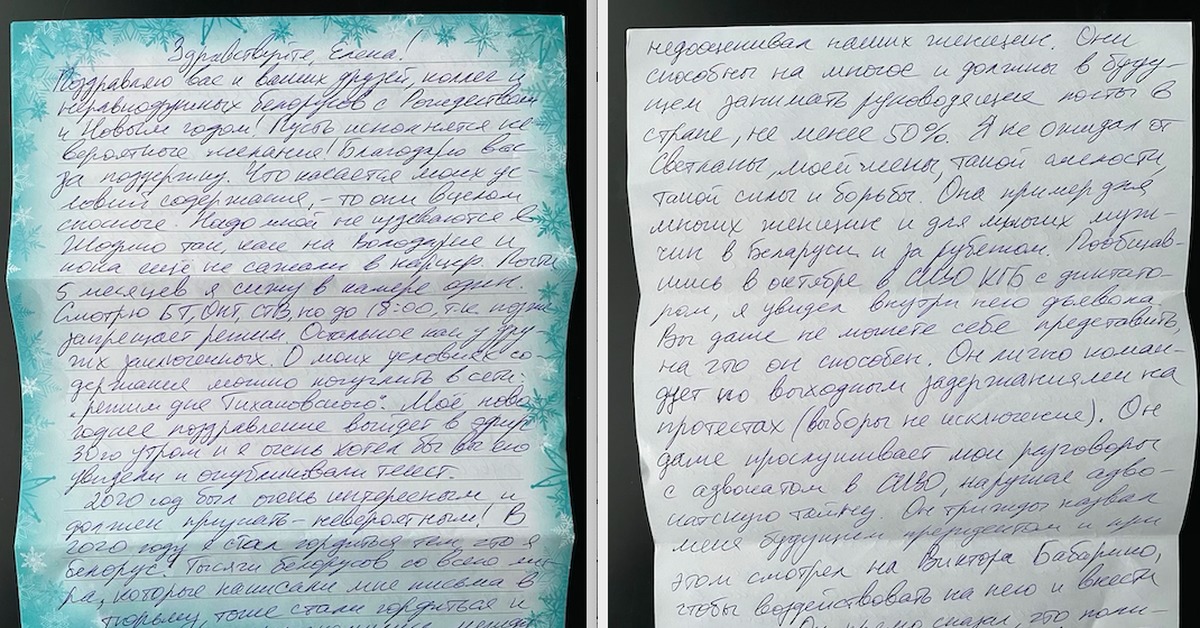 Здравствуйте, Елена!
Поздравляю вас и ваших друзей, коллег и
неравнодушных белорусов с Рождеством
и Новым годом! Пусть исполнятся не-
вероятные желания! Благодарю вас
за поддержку. Что касается моих ус-
ловий содержания, – то они в целом
сносные. Надо мной не издеваются в
Жодино так, как на Володарке и
пока ещё не сажали в карцер. Почти
5 месяцев я сижу в камере один.
Смотрю БТ, ОНТ, СТВ, но до 18:00, т.к. позже
запрещает режим. Остальное как у дру-
гих заключенных. О моих условиях со-
держания можно погуглить в сети:
"режим дня Тихановского". Моё ново-
годнее поздравление выйдет в эфир
30го утром и я очень хотел бы вы его
увидели и опубликовали текст.
2020 год был очень интересным и
должен признать – невероятным! В
2020 году я стал гордиться тем, что я
белорус! Тысячи белорусов со всего ми-
ра, которые написали мне письма в
тюрьму, тоже стали гордиться и
недооценивал наших женщин. Они
способны на многое и должны в буду-
щем занимать руководящие посты в
стране, не менее 50%. Я не ожидал от
Светланы, моей жены, такой смелости,
такой силы и борьбы. Она пример для
многих женщин и для многих муж-
чин в Беларуси и за рубежом. Пообщав-
шись в октябре в СИЗО КГБ с диктато-
ром, я увидел внутри него дьявола.
Вы даже не можете себе представить,
на что он способен. Он лично коман-
дует по выходным задержаниями на
протестах (выборы не исключение). Он
даже прослушивает мои разговоры
с адвокатом в СИЗО, нарушая адво-
катскую тайну. Он трижды назвал
меня будущим президентом и при
этом смотрел на Виктора Бабарико,
чтобы воздействовать на него и внести
сказал, что